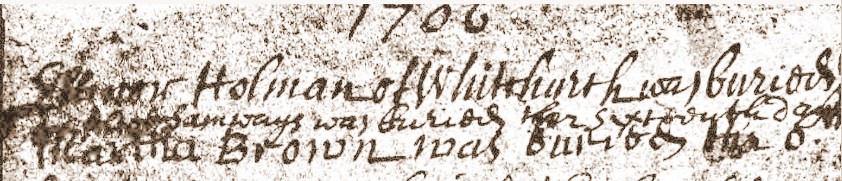 1706
Holman of Whitchurch was buried
Samways was buried the sixteenth day
Martha Brown was buried the 8